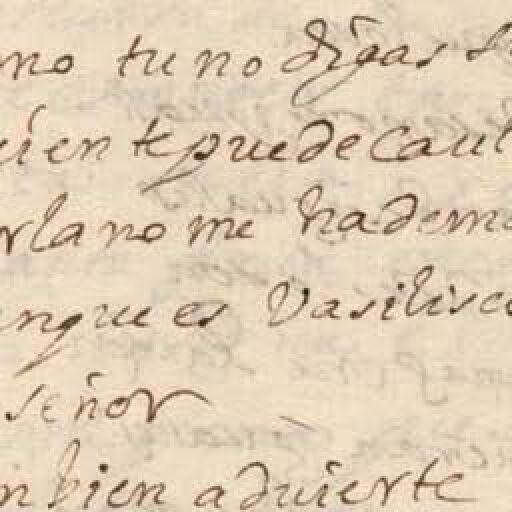 mo tu no digas si
ien te puede caut
rla no me ha de ma
unque es Vasilisco
señor
nbien advierte